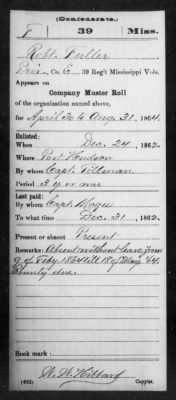 (Confederate.)
F 39 Miss.
Robt. Fuller
Priv., Co. C, 39 Reg't Mississippi Vols.
Appears on
Company Muster Roll
of the organization named above,
for April 30 to Aug 31, 1864.
Enlisted:
When Dec. 24, 1862.
Where Port Hudson
By whom Capt. Tillman
Period 3 y or war
Last paid:
By whom Capt. Magee
To what time Dec. 31, 1862.
Present or absent Present
Remarks: Absent without leave from
9 of Feby. 1864 till 18 of May '64.
Bounty due.
Book mark:
(642) Copyist.